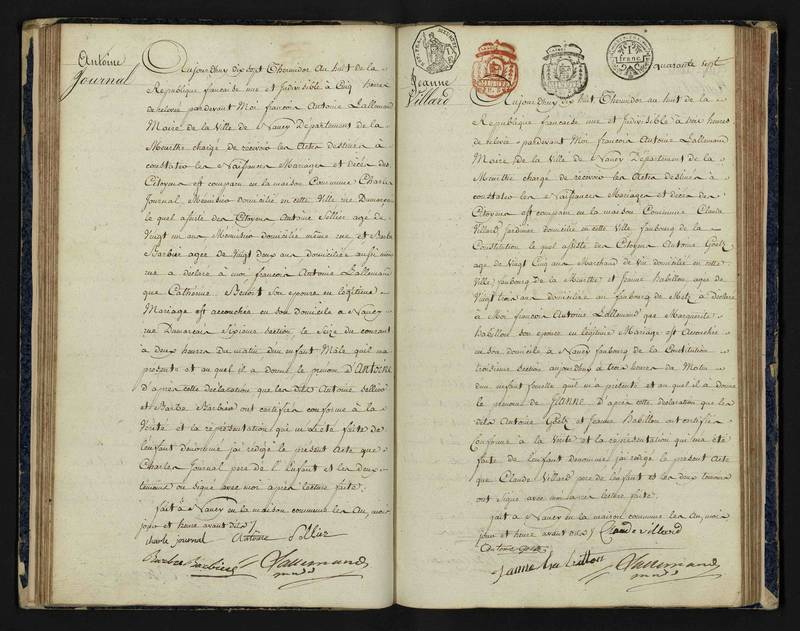 Antoine
Journal
Aujourd'huy dix sept Thermidor an huit de la
République française une et Indivisible à Cinq heures
de relevée pardevant Moi françois Antoine Lallemand
Maire de la Ville de Nancy Département de la
Meurthe chargé de recevoir les Actes destinés à
constater les Naissances Mariages et décès des
Citoyens est comparu en la maison Commune Charles
Journal Menuisier domicilié en cette Ville rue
le quel assisté des Citoyens Antoine Sellier agé de
Vingt un ans Menuisier domicilié même rue et Barbe
Barbier agée de Vingt deux ans domiciliée aussi même
rue a déclaré à moi françois Antoine Lallemand
que Catherine Benoit son épouse en légitime
Mariage est accouchée en son domicile a Nancy
rue section le Seize du courant
à deux heures du matin d'un Enfant Mâle quil ma
présenté et au quel il a donné le prénom d'Antoine
d'après cette déclaration que les dits Antoine Sellier
et Barbe Barbier ont certifiée conforme à la
Vérité et la représentation qui m'a été faite de
l'enfant dénommé jai rédigé le présent Acte que
Charles Journal pere de l'Enfant et les deux
témoins ont signé avec moi après lecture faite.
fait à Nancy en la maison commune les An, mois
jour et heure avant dits /.
charle journal Antoine Sellier
Barbe Barbière Lallemand
1
franc
quarante sept
Jeanne
Villard
Aujourd'huy dix huit Thermidor an huit de la
République française une et Indivisible à trois heures
de relevée pardevant Moi françois Antoine Lallemand
Maire de la Ville de Nancy Département de la
Meurthe chargé de recevoir les Actes destinés à
constater les Naissances Mariages et décès des
Citoyens est comparu en la maison Commune Claude
Villard Jardinier domicilié en cette Ville faubourg de la
Constitution le quel assisté des Citoyens Antoine Goetz
agé de Vingt Cinq ans Marchand de Vin domicilié en cette
Ville faubourg de la Meurthe et Jeanne Babillon agée de
Vingt trois ans domiciliée au faubourg de Metz a déclaré
à Moi françois Antoine Lallemand que Marguerite
Babillon son épouse en légitime Mariage est Accouchée
en son domicile a Nancy faubourg de la Constitution
troisieme section aujourdhuy à trois heures du Matin
d'un enfant femelle quil m'a présenté et au quel il a donné
le prénom de Jeanne d'après cette déclaration que les
dits Antoine Goetz et Jeanne Babillon ont certifiée
conforme à la Vérité et la représentation qui ma été
faite de l'enfant dénommé jai rédigé le présent Acte
que Claude Villard pere de l'enfant et les deux témoins
ont signé avec moi après lecture faite.
fait à Nancy en la maison commune les An, mois
jour et heure avant dits / Claude Villard
Antoine Goetz
Janne babillon Lallemand